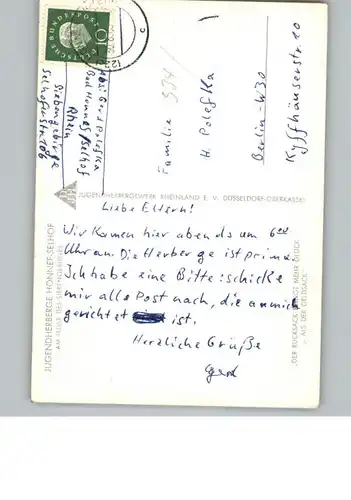 DEUTSCHE BUNDESPOST
10
Abs: Gerd Polefka
Bad Honnef/Selhof
Rhein
Siebengebirge
Selhoferstr. 106
Familie
H. Polefka
Berlin-W30
Kyffhäuserstr 10
JUGENDHERBERGSWERK RHEINLAND E. V. DÜSSELDORF-OBERKASSEL
JUGENDHERBERGE HONNEF-SELHOF
AM FUSSE DES SIEBENGEBIRGES
Liebe Eltern!
Wir kamen hier abends um 6
Uhr an. Die Herberge ist prima.
Ich habe eine Bitte: schicke
mir alle Post nach, die an mich
gerichtet ist.
Herzliche Grüße
Gerd
„DER RUCKSACK BIRGT MEHR GLÜCK
- ALS DER GELDSACK."